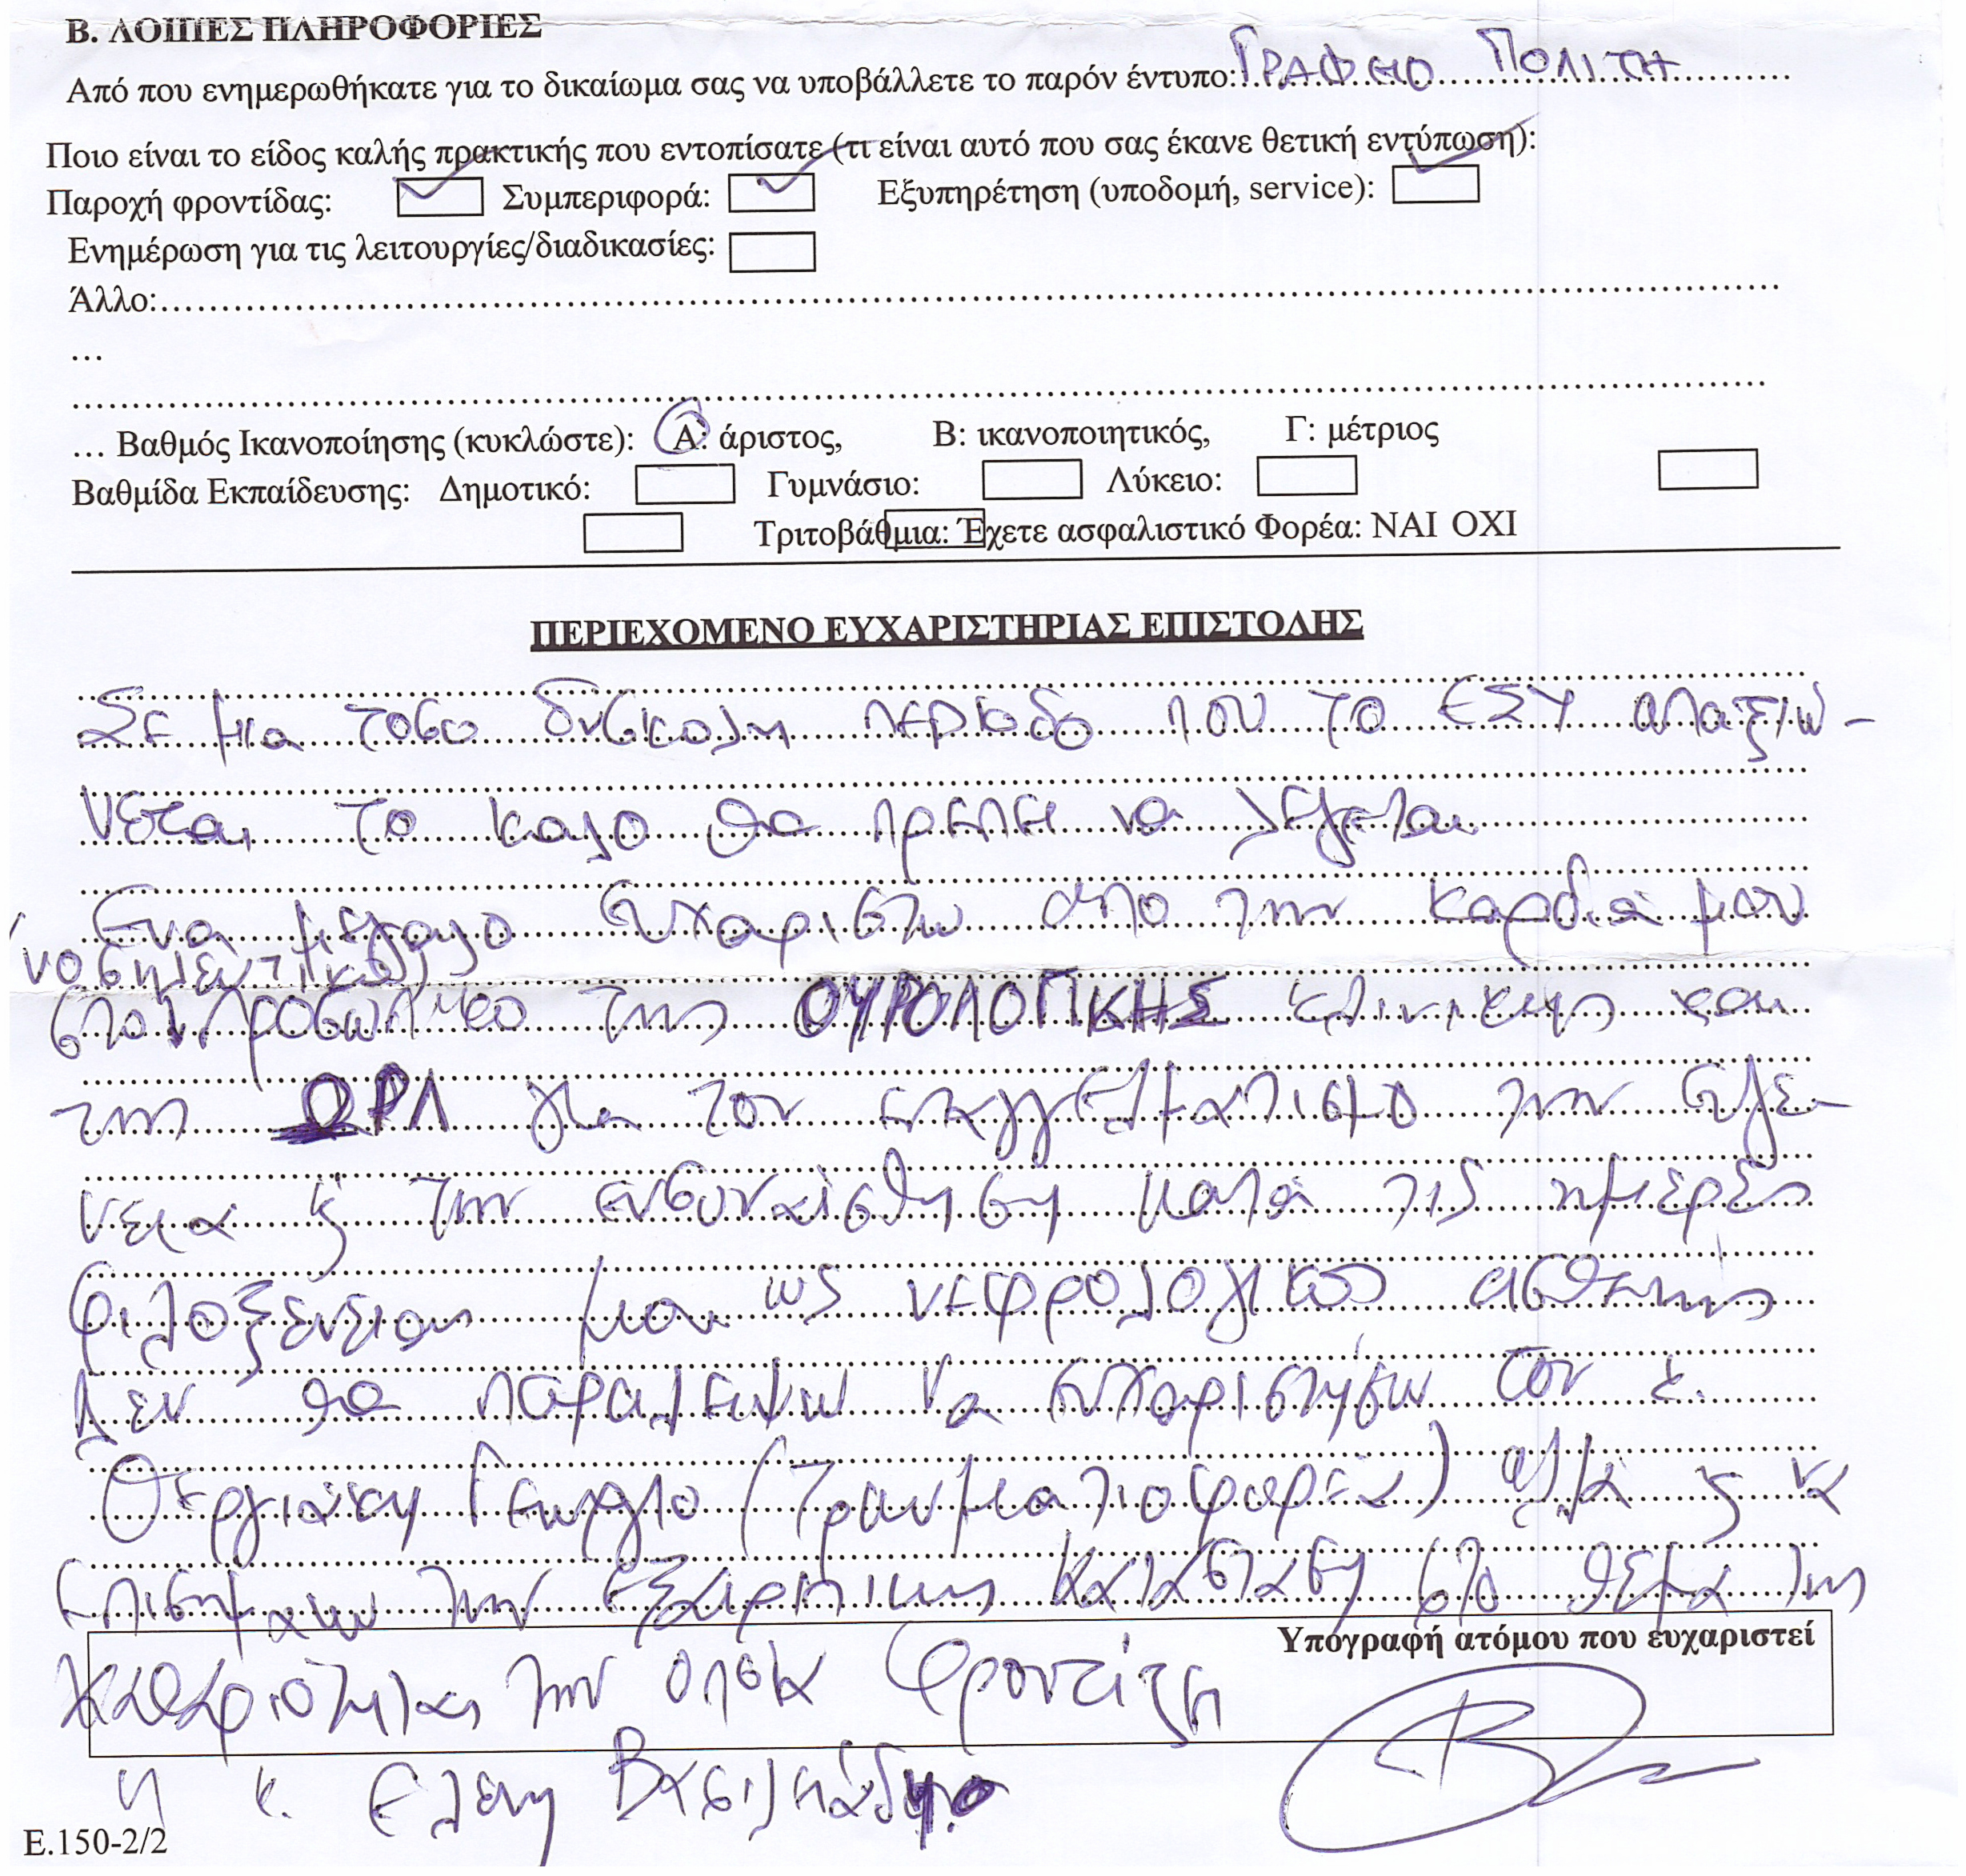 Β. ΛΟΙΠΕΣ ΠΛΗΡΟΦΟΡΙΕΣ
Από που ενημερωθήκατε για το δικαίωμα σας να υποβάλλετε το παρόν έντυπο: ΓΡΑΦΕΙΟ ΠΟΛΙΤΗ
Ποιο είναι το είδος καλής πρακτικής που εντοπίσατε (τι είναι αυτό που σας έκανε θετική εντύπωση):
Παροχή φροντίδας: ✓ Συμπεριφορά: ✓ Εξυπηρέτηση (υποδομή, service): ✓
Ενημέρωση για τις λειτουργίες/διαδικασίες:
Άλλο:
…
… Βαθμός Ικανοποίησης (κυκλώστε): Α: άριστος, Β: ικανοποιητικός, Γ: μέτριος
Βαθμίδα Εκπαίδευσης: Δημοτικό: Γυμνάσιο: Λύκειο:
Τριτοβάθμια: Έχετε ασφαλιστικό Φορέα: ΝΑΙ ΟΧΙ
ΠΕΡΙΕΧΟΜΕΝΟ ΕΥΧΑΡΙΣΤΗΡΙΑΣ ΕΠΙΣΤΟΛΗΣ
Σε μια τοσο δυσκολη περιοδο που το ΕΣΥ απαξιω-
νεται το καλο θα πρεπει να λεγεται
Ενα μεγαλο ευχαριστω απο την καρδια μου
νοσηλευτικο
στο προσωπικο της ΟΥΡΟΛΟΓΙΚΗΣ κλινικης και
της ΩΡΛ για τον επαγγελματισμο την ευγε-
νεια κ την ενσυναισθηση κατα τις ημερες
φιλοξενειας μου ως νεφρολογικος ασθενης
Δεν θα παραλειψω να ευχαριστήσω τον κ.
Θεργιάκη Γεωργιο (τραυματιοφορεα) αλλά κ να
επισημανω την εξαιρετικη κατασταση στο θεμα της
καθαριοτητας την οποια φροντιζει
Υπογραφή ατόμου που ευχαριστεί
η κ. Ελενη
Ε.150-2/2